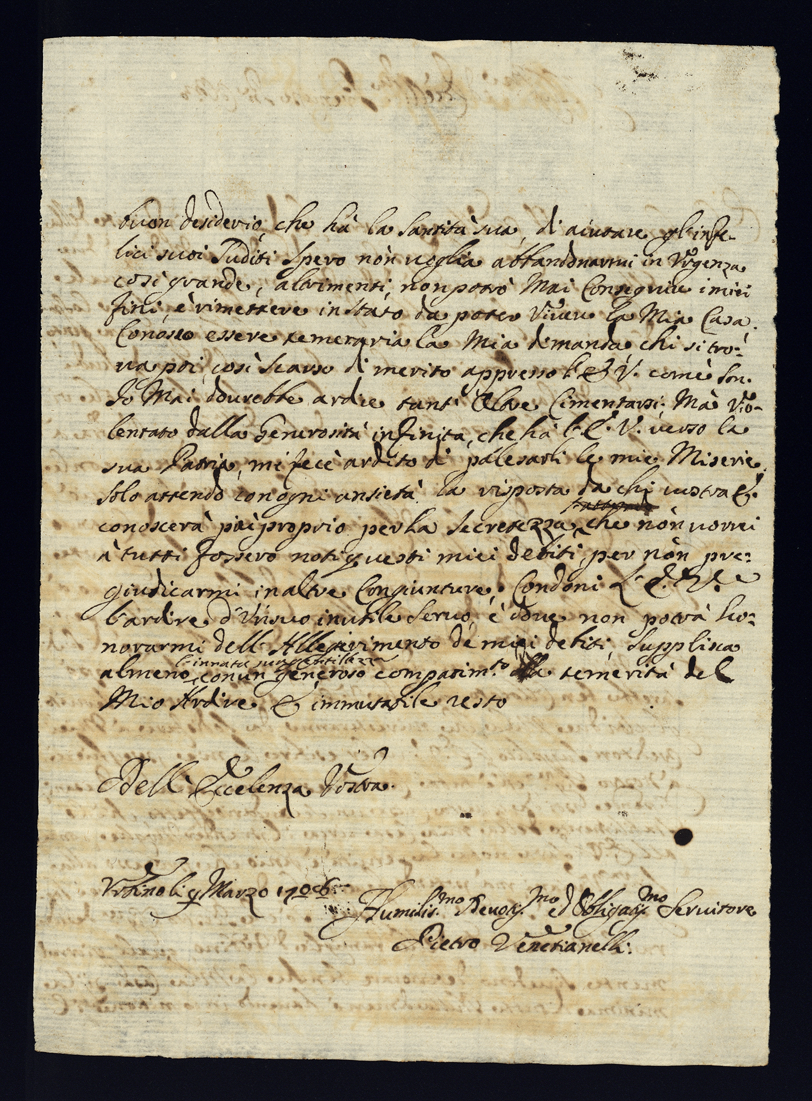 buon desiderio, che hà la Santità sua, di aiutare gl'infe-
lici suoi suditi spero non voglia abbandonarmi in Urgenza
così grande, altrimenti non potrò Mai Conseguire i miei
fini, e rimettere in stato da poter Vivere la Mia Casa.
Conosco essere temeraria la Mia dimanda chi si tro-
va poi così scarso di merito appreno l'E. V. come son
Io Mai dovrebbe ardire tant'oltre Cimentarsi. Mà Vio-
lentato dalla Generosità infinita, che hà l'E. V. verso la
sua Patria, mi fece ardito di palesarli le mie Miserie,
solo attendo con ogni ansietà la risposta da chi vostra E.
conoscerà più proprio per la secretezza, che non vorrei
à tutti fossero noti questi miei debiti, per non pre-
giudicarmi in altre Congiunture, Condoni L'E. V.
l'ardire d'Un suo inutile servo, è dove non potrà ho-
norarmi dell'Allegerimento de miei debiti, supplisca
almeno, l'innata sua gentilezza
con un generoso compatim.to alla temerità del
Mio Ardire, et immutabile resto
Dell'Eccelenza Vostra
Urbino li 9 Marzo 1706
Humiliss.mo Devotiss.mo ed Obligatiss.mo Servitore
Pietro Venetianelli.